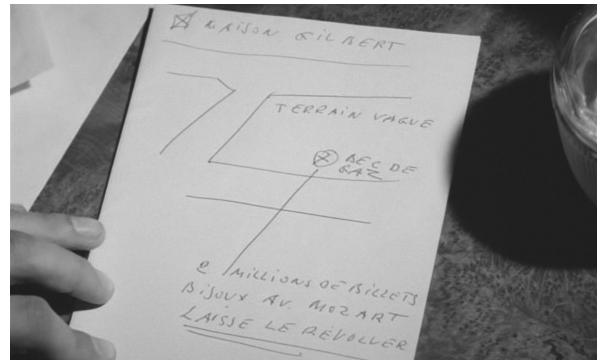 MAISON GILBERT
TERRAIN VAGUE
BEC DE
GAZ
2 MILLIONS DE BILLETS
BIJOUX AV. MOZART
LAISSE LE REVOLVER